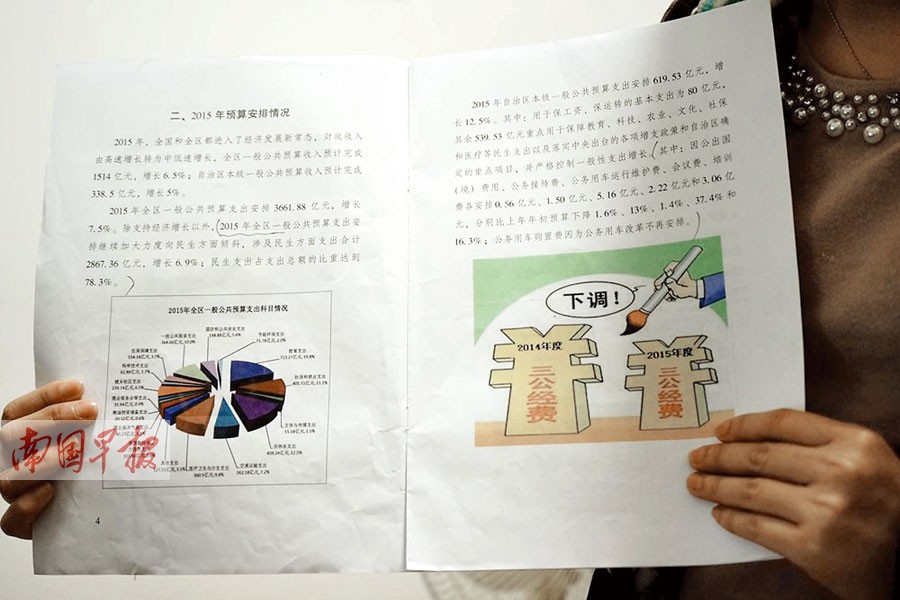 二、2015 年预算安排情况
2015 年，全国和全区都进入了经济发展新常态，财政收入
由高速增长转为中低速增长，全区一般公共预算收入预计完成
1514 亿元，增长 6.5%；自治区本级一般公共预算收入预计完成
338.5 亿元，增长 5%。
2015 年全区一般公共预算支出安排 3661.88 亿元，增长
7.5%。除支持经济增长以外，2015 年全区一般公共预算支出安
排继续加大力度向民生方面倾斜，涉及民生方面支出合计
2867.36 亿元，增长 6.9%；民生支出占支出总额的比重达到
78.3%。
2015年全区一般公共预算支出科目情况
一般公共服务支出
节能环保支出
教育支出
科学技术支出
交通运输支出
农林水支出
医疗卫生与计生支出
4
2015 年自治区本级一般公共预算支出安排 619.53 亿元，增
长 12.5%。其中：用于保工资、保运转的基本支出为 80 亿元，
其余 539.53 亿元重点用于保障教育、科技、农业、文化、社保
和医疗等民生支出以及落实中央出台的各项增支政策和自治区确
定的重点项目，并严格控制一般性支出增长。其中：因公出国
（境）费用，公务接待费、公务用车运行维护费、会议费、培训
费各安排 0.56 亿元、1.50 亿元、5.16 亿元、2.22 亿元和 3.06 亿
元，分别比上年年初预算下降 1.6%、13%、1.4%、37.4% 和
16.3%；公务用车购置费因为公务用车改革不再安排。
下调！
2014年度
三公经费
2015年度
三公经费
南国早报